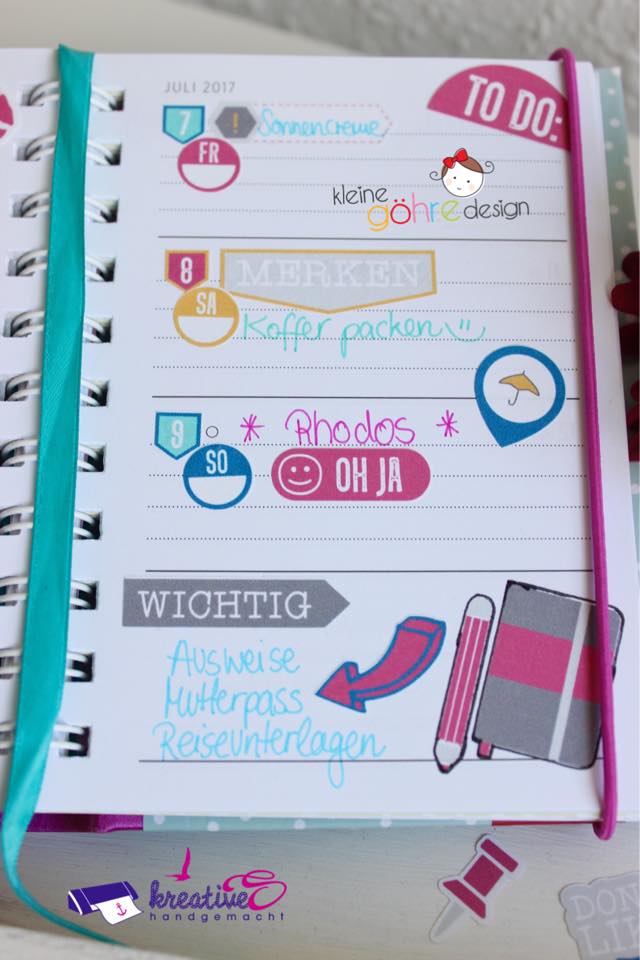 JULI 2017
TO DO:
7 ! Sonnencreme
FR
kleine
göhre design
8 MERKEN
SA
Koffer packen
9 * Rhodos *
SO OH JA
WICHTIG
Ausweise
Mutterpass
Reiseunterlagen
kreativeE
handgemacht
DON
LI